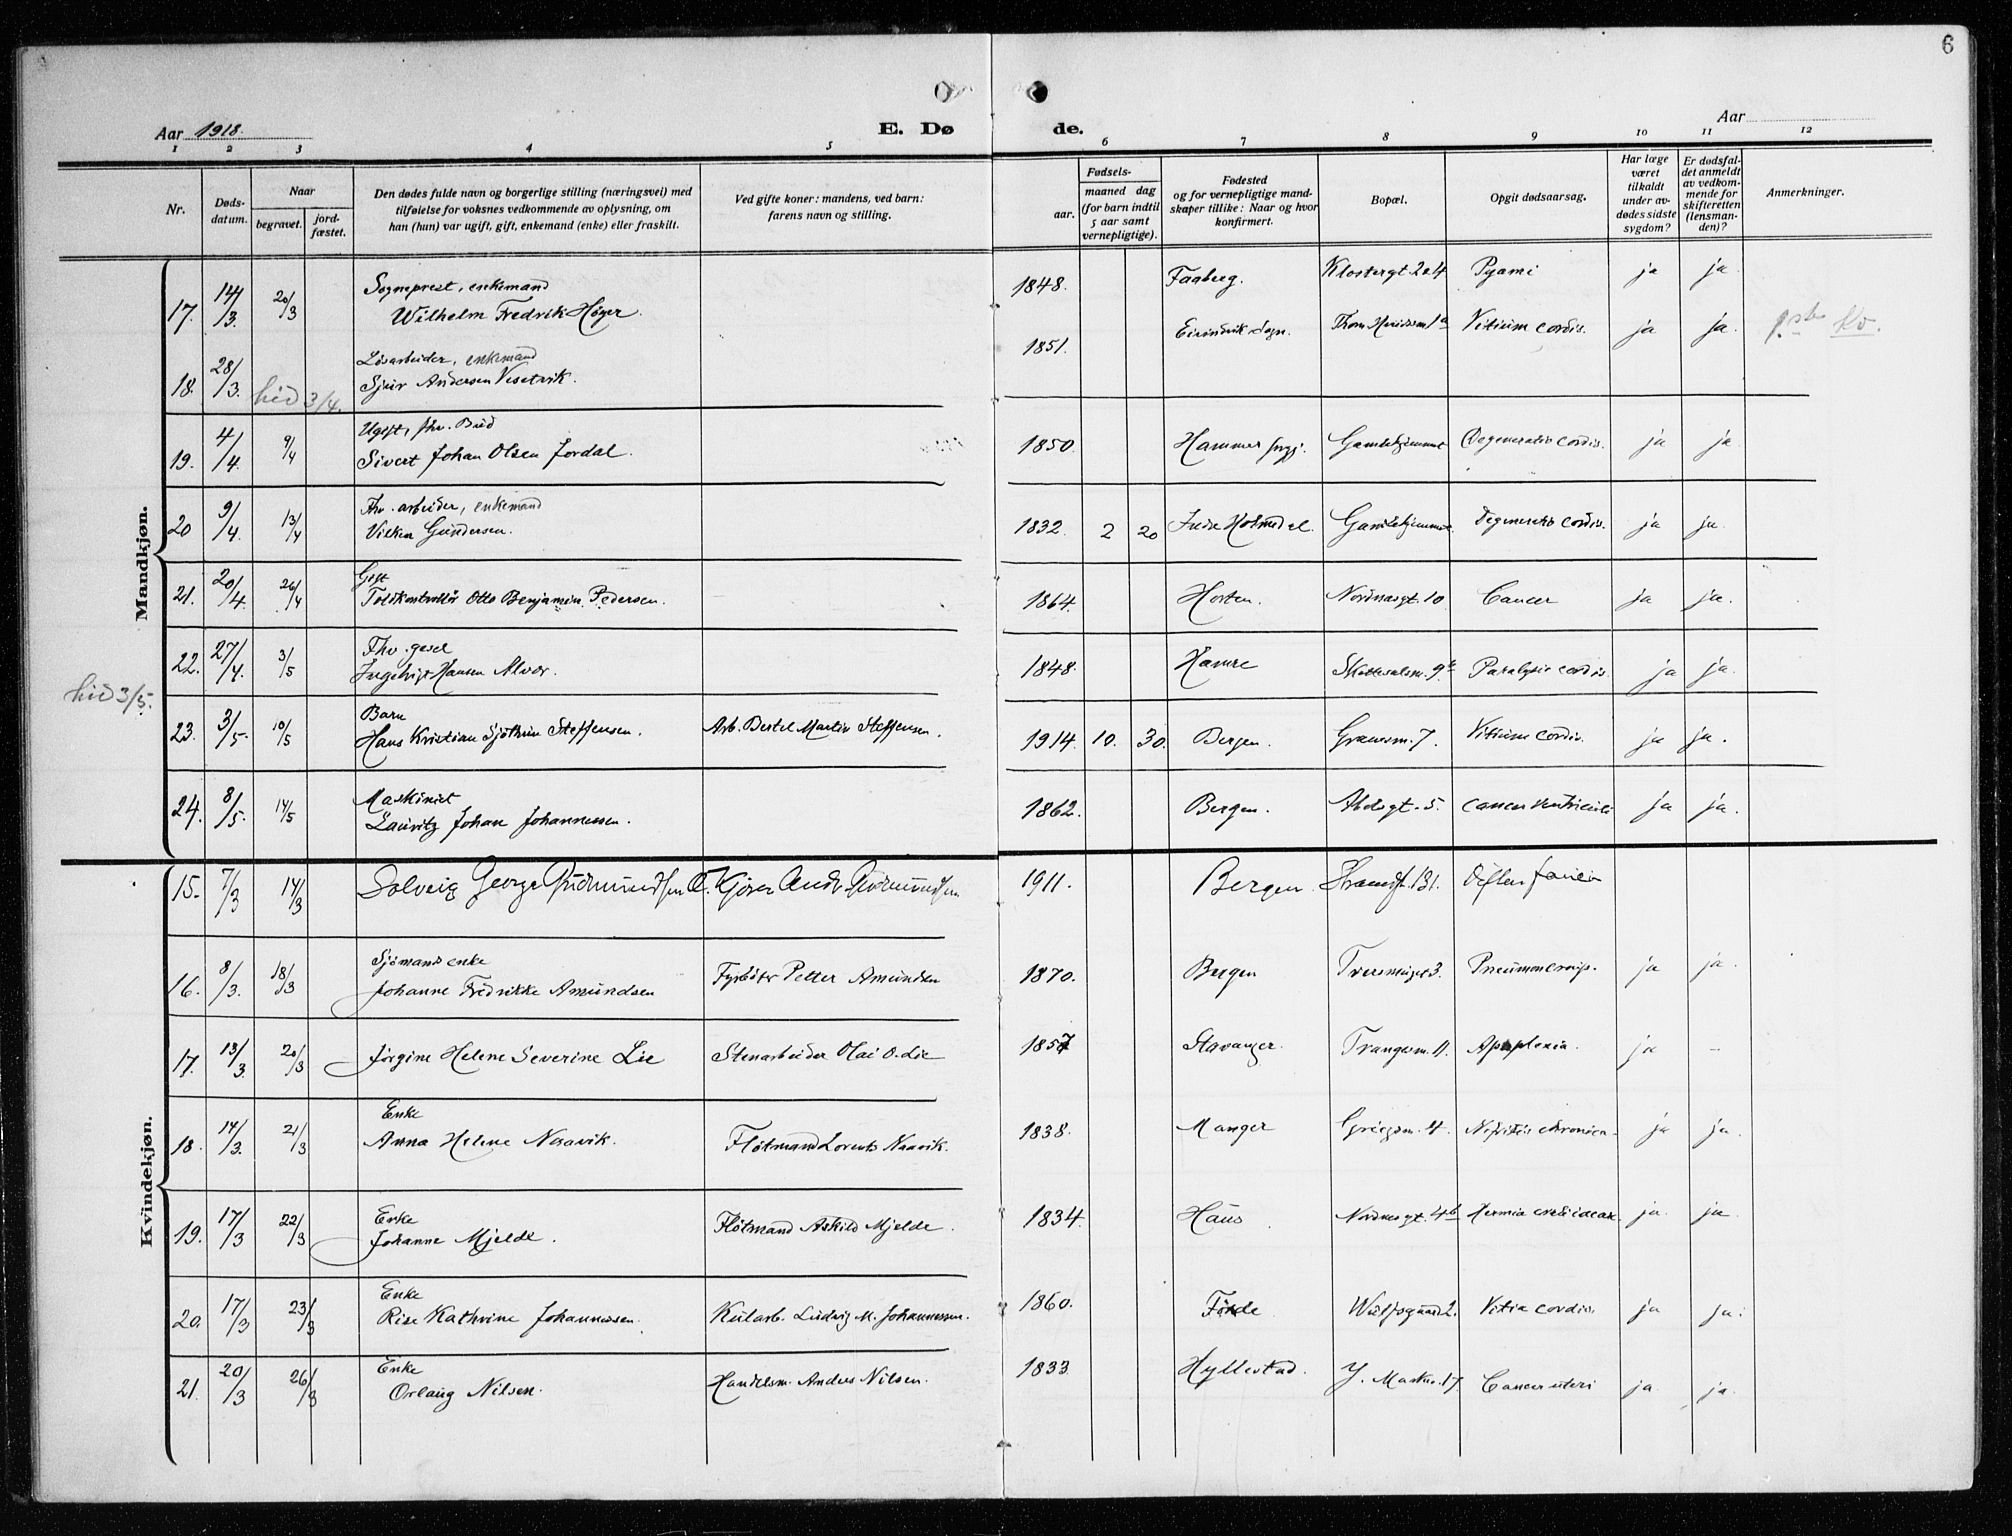 6
Aar 1918.
E. Dø de.
Aar
1 2 3 4 5 6 7 8 9 10 11 12
Nr.
Døds-
datum.
Naar
begravet.
jord-
fæstet.
Den dødes fulde navn og borgerlige stilling (næringsvei) med
tilføielse for voksnes vedkommende av oplysning, om
han (hun) var ugift, gift, enkemand (enke) eller fraskilt.
Ved gifte koner: mandens, ved barn:
farens navn og stilling.
Fødsels-
aar.
maaned dag
(for barn indtil
5 aar samt
vernepligtige).
Fødested
og for vernepligtige mand-
skaper tillike: Naar og hvor
konfirmert.
Bopæl.
Opgit dødsaarsag.
Har læge
været
tilkaldt
under av-
dødes sidste
sygdom?
Er dødsfal-
det anmeldt
av vedkom-
mende for
skifteretten
(lensman-
den)?
Anmerkninger.
Mandkjøn.
Sogneprest, enkemand
17. 14/3. 20/3 Wilhelm Fredrik Høyer. 1848. Faaberg. Klostergt 20 4 Pyæmi ja ja.
Løsarbeider, enkemand
18. 28/3. Sjur Andersen Vesetvik. 1851. Eivindvik Sogn. Vitium cordis. ja ja.
hid 3/4.
Ugift, fhv. Bud
19. 4/4. 9/4 Sivert Johan Olsen Jordal. 1850. Hammer Gamlehjemmet Degeneratio cordis. ja ja.
Fhv. arbeider, enkemand
20 9/4. 13/4 Vilken Gundersen. 1832. 2 20 Indre Holmedal. Gamlehjemmet. Degeneratio cordis. ja ja.
Gift
21. 20/4. 26/4 Toldkontrollør Otto Benjamin Pedersen. 1864. Horten. Nordnesgt. 10 Cancer ja ja.
Fhv. gesel
22. 27/4. 3/5 Ingebrigt Hansen Alvær. 1848. Hamre Paralysis cordis. ja ja.
hid 3/5.
Barn
23. 3/5. 10/5 Hans Kristian Steffensen. Arb. Bertel Martin Steffensen. 1914. 10. 30. Bergen. 7. Vitium cordis. ja ja.
Maskinist
24. 8/5. 14/5 Lauritz Johan Johannessen. 1862. Bergen. 5. Cancer ventriculi ja ja.
Kvindekjøn.
15. 7/3 14/3 Solveig George Gudmundsen Andr. Gudmundsen 1911. Bergen Strandgt. 131.
Sjømands enke
16. 8/3. 18/3 Johanne Fredrikke Amundsen Fyrbøter Petter Amundsen 1870. Bergen 3. ja ja.
17. 13/3. 20/3 Jørgine Helene Severine Lie Stenarbeider Olai O. Lie 1857 Stavanger. Trangesm. 11. Apoplexia. ja –
Enke
18. 14/3. 21/3 Anna Helene Naavik. Fløtmand Lorents Naavik. 1838. Manger 4. Nefritis chronica. ja ja.
Enke
19. 17/3 22/3 Johanne Mjelde. Fløtmand Askild Mjelde. 1834. Haus. Nordnesgt. 4b ja. ja.
Enke
20. 17/3 23/3 Rise Kathrine Johannessen. Kularb. Ludvig M. Johannessen. 1860. Førde 2. Vitia cordis. ja ja.
Enke
21. 20/3 26/3 Orlaug Nilsen. Handelsm. Anders Nilsen. 1833 Hyllestad. 17 Cancer uteri ja ja.